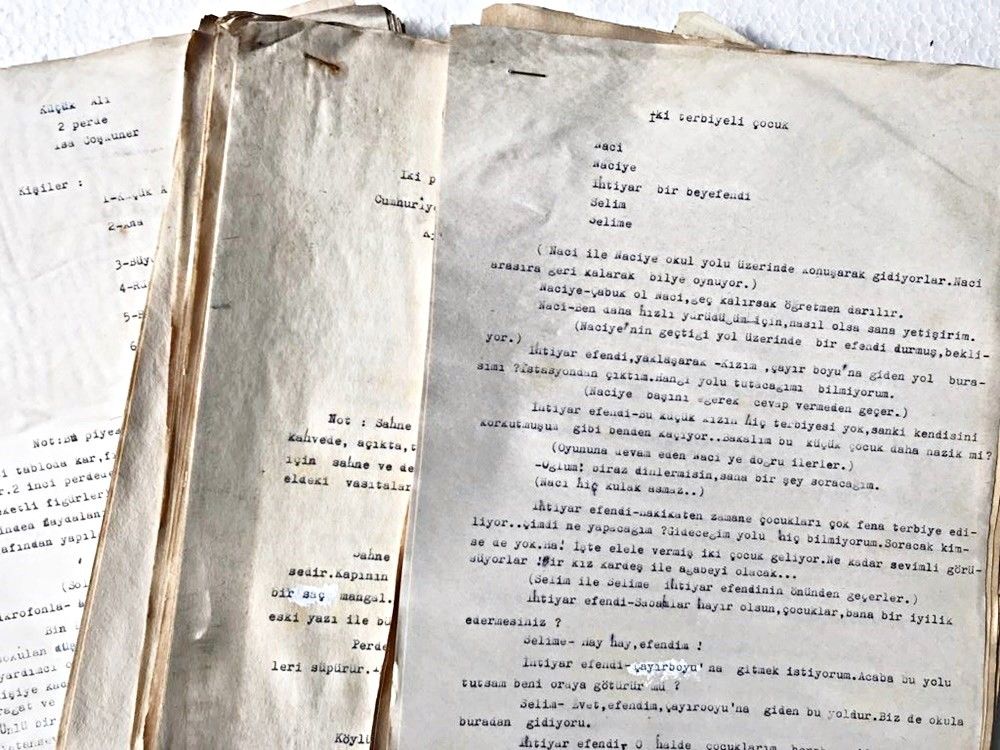 Küçük Ali
2 perde
İsa Coşkuner
Kişiler :
1-Küçük A
2-Ana
3-Büy
4-
5-
6
Not:Bu piyes
i tabloda kar,
r.2 inci perdede
ketli figürler
inden faydalan
afından yapıl
(Sol
ikrofonla-
Bin
yardımcı
ragat ve
Ünlü bir
Iki p
Cumhuriye
Not : Sahne
kahvede, açıkta,t
için sahne ve de
eldeki vasıtalar
Sahne
sedir.Kapının
bir saç mangal.
eski yazı ile bu
Perde
leri süpürür.
Köylü
İki terbiyeli çocuk
Naci
Naciye
İhtiyar bir beyefendi
Selim
Selime
( Naci ile Naciye okul yolu üzerinde konuşarak gidiyorlar.Naci
arasıra geri kalarak bilye oynuyor.)
Naciye-Çabuk ol Naci,geç kalırsak öğretmen darılır.
Naci-Ben daha hızlı yürüdüğüm için,nasıl olsa sana yetişirim.
(Naciye'nin geçtiği yol üzerinde bir efendi durmuş,bekli-
yor.)
İhtiyar efendi,yaklaşarak -Kızım ,çayır boyu'na giden yol bura-
sımı ?İstasyondan çıktım.Hangi yolu tutacağımı bilmiyorum.
(Naciye başını eğerek cevap vermeden geçer.)
İhtiyar efendi-Bu küçük kızın hiç terbiyesi yok,sanki kendisini
korkutmuşum gibi benden kaçıyor..Bakalım bu küçük çocuk daha nazik mi?
(Oyununa devam eden Naci ye doğru ilerler.)
-Oğlum! biraz dinlermisin,sana bir şey soracağım.
(Naci hiç kulak asmaz..)
İhtiyar efendi-Hakikaten zamane çocukları çok fena terbiye edi-
liyor..Şimdi ne yapacağım ?Gideceğim yolu hiç bilmiyorum.Soracak kim-
se de yok.Ha! İşte elele vermiş iki çocuk geliyor.Ne kadar sevimli görü-
süyorlar !Bir kız kardeş ile ağabeyi olacak...
(Selim ile Selime ihtiyar efendinin önünden geçerler.)
İhtiyar efendi-Sabahlar hayır olsun,çocuklar,bana bir iyilik
edermesiniz ?
Selime- Hay hay,efendim !
İhtiyar efendi-Çayırboyu'na gitmek istiyorum.Acaba bu yolu
tutsam beni oraya götürür mü ?
Selim- Evet,efendim,Çayırboyu'na giden bu yoldur.Biz de okula
buradan gidiyoru.
İhtiyar efendi, O halde çocuklarım